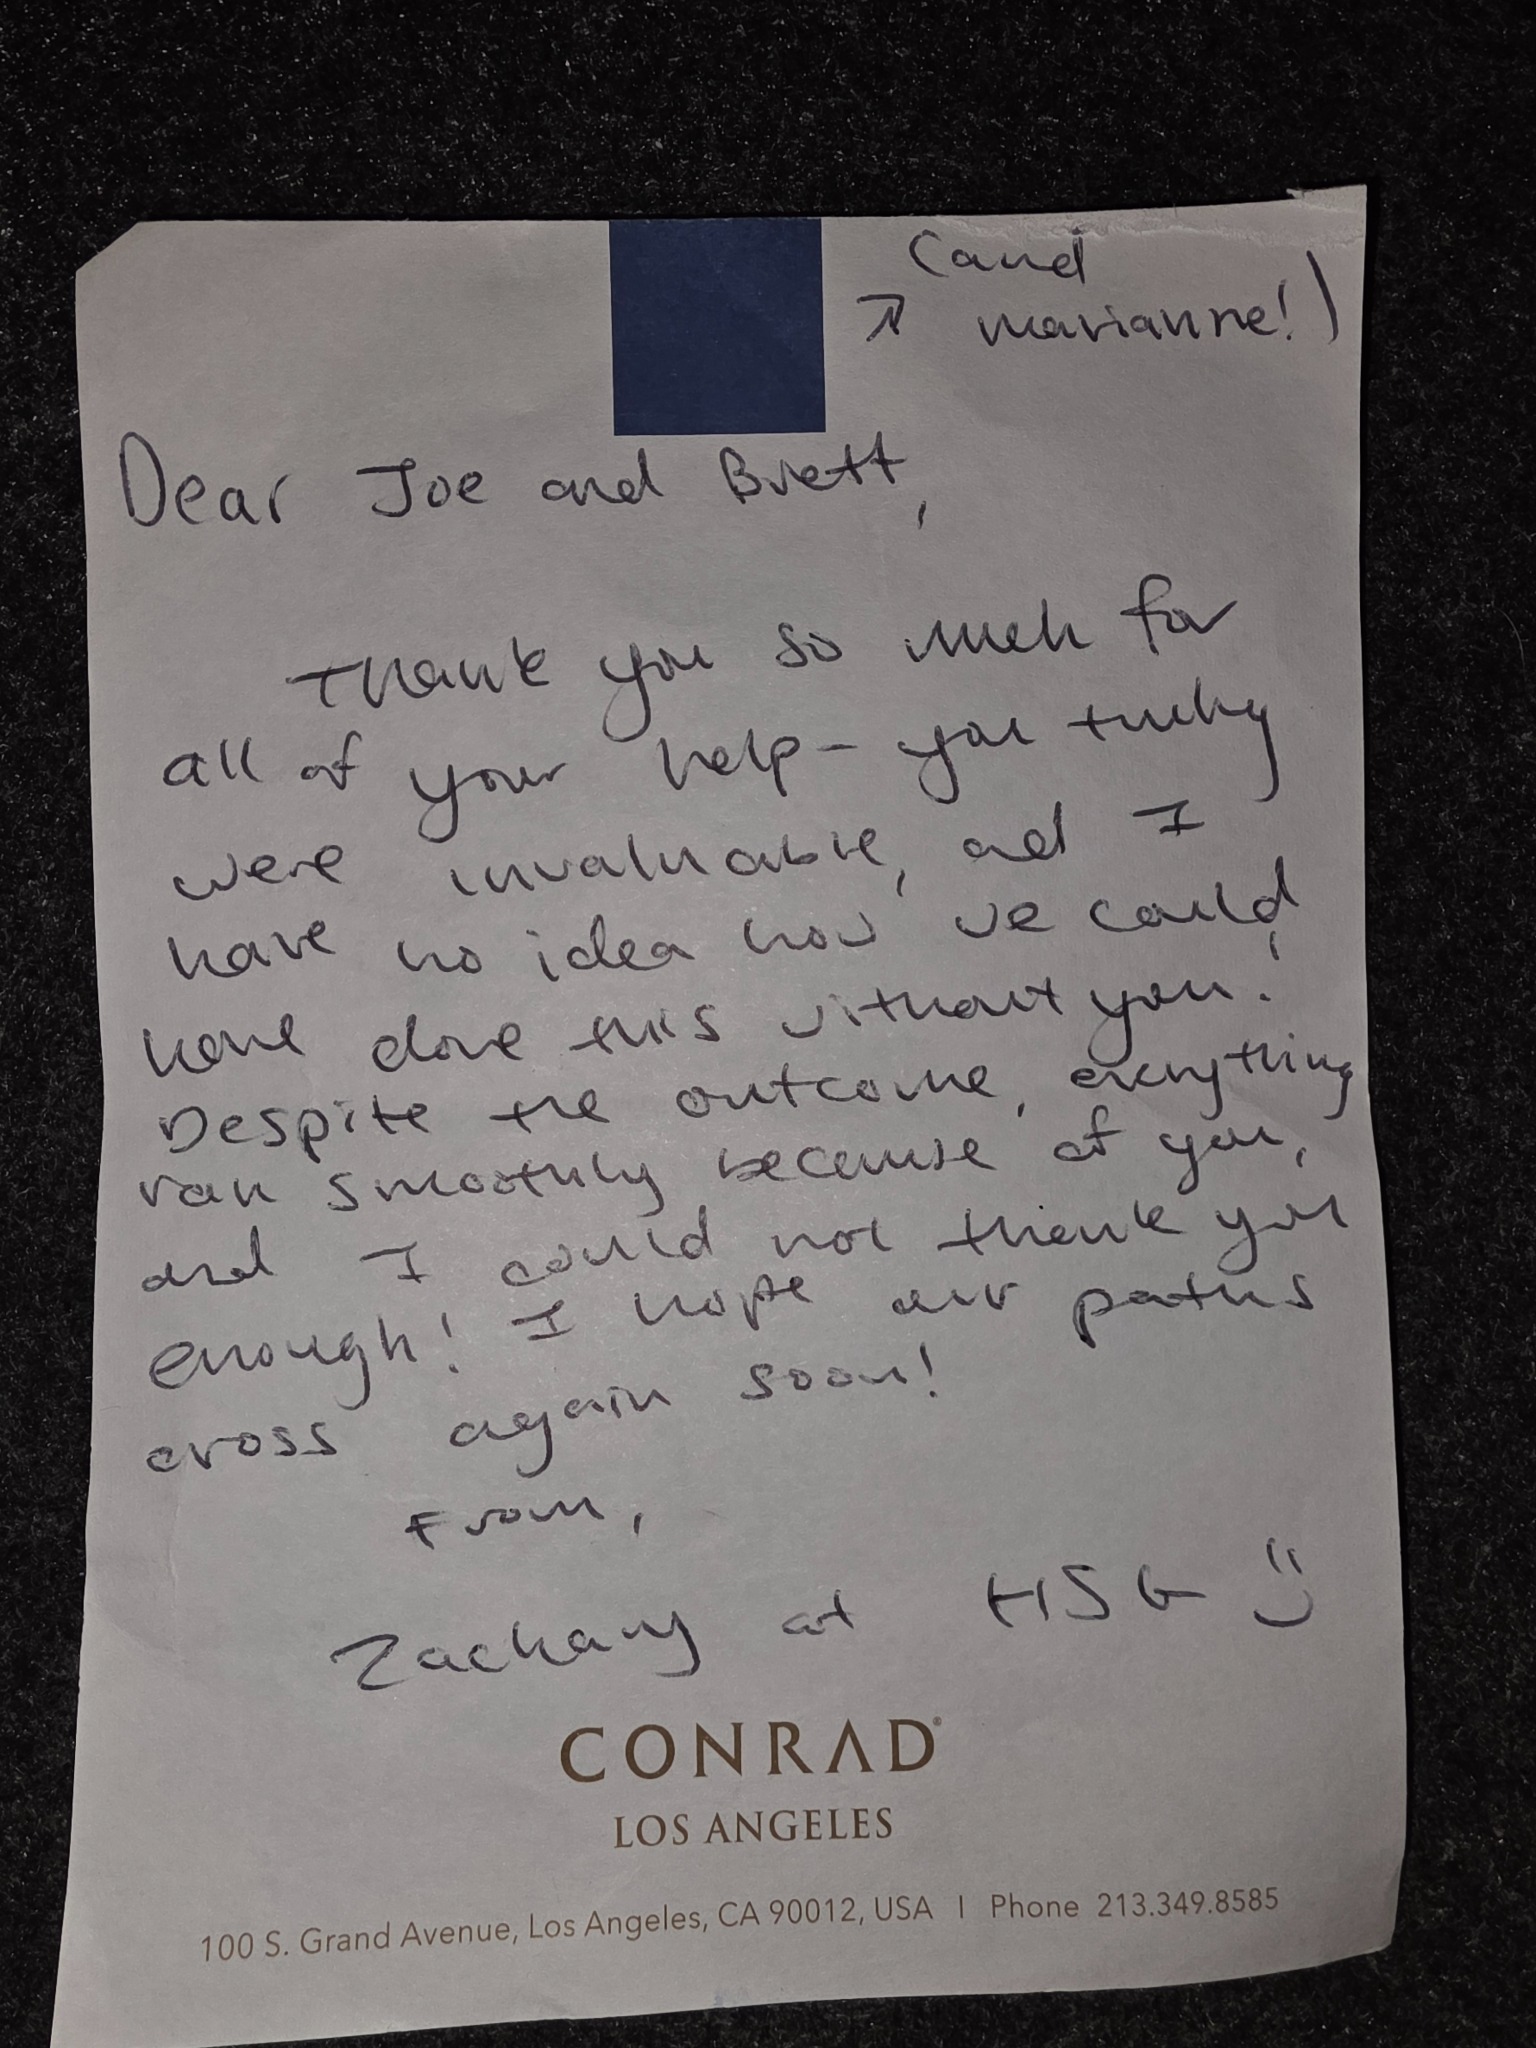 (and
↗ marianne!)
Dear Joe and Brett,
Thank you so much for
all of your help- you truly
were invaluable, and I
have no idea how we could
have done this without you!
Despite the outcome, everything
ran smoothly because of you,
and I could not thank you
enough! I hope our paths
cross again soon!
From,
Zachary at HSG
CONRAD®
LOS ANGELES
100 S. Grand Avenue, Los Angeles, CA 90012, USA | Phone 213.349.8585